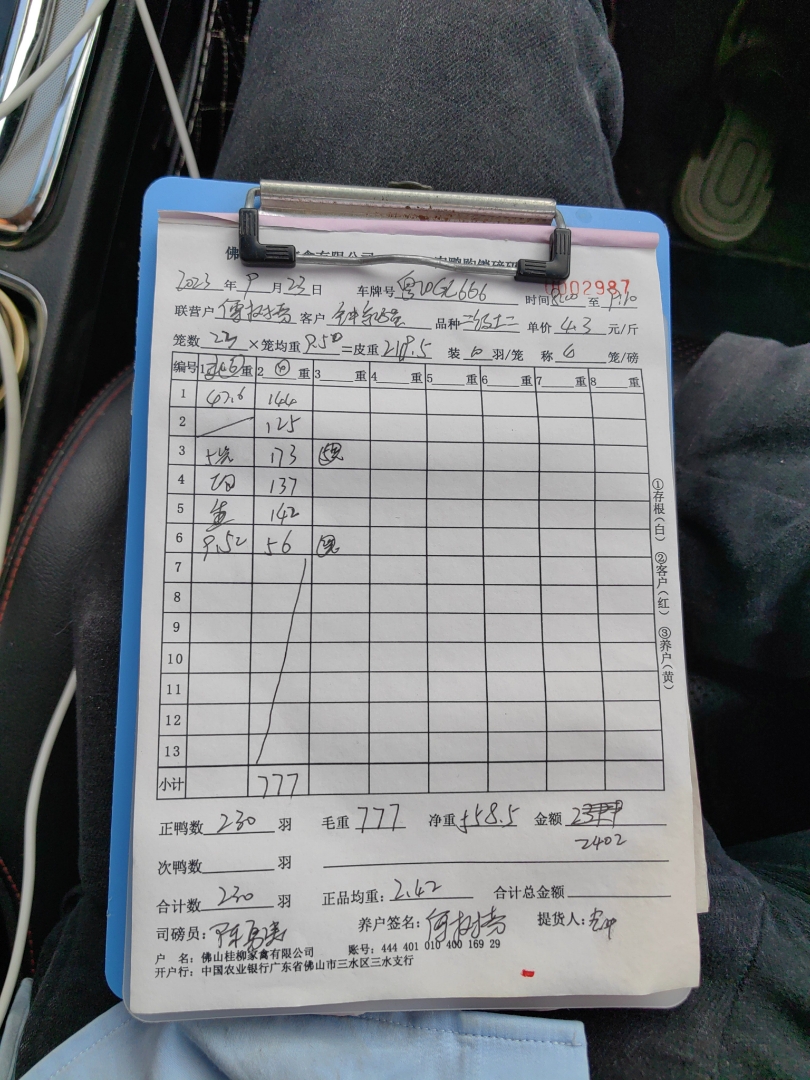 佛 禽有限公司 鸭购销磅码
0002987
2023 年 9 月 23 日 车牌号 粤 666 时间 至 9:10
联营户 客户 品种 单价 4.3 元/斤
笼数 23 ×笼均重 9.50 =皮重 218.5 装 羽/笼 称 6 笼/磅
编号 1 重 2 重 3 重 4 重 5 重 6 重 7 重 8 重
1 47.6 144
2 125
3 173
4 137
5 142
6 9.52 56
7
8
9
10
11
12
13
小计 777
①存根(白) ②客户(红) ③养户(黄)
正鸭数 230 羽 毛重 777 净重 558.5 金额
2402
次鸭数 羽
合计数 230 羽 正品均重: 2.42 合计总金额
司磅员: 养户签名: 提货人:
户 名: 佛山桂柳家禽有限公司 账号: 444 401 010 400 169 29
开户行: 中国农业银行广东省佛山市三水区三水支行